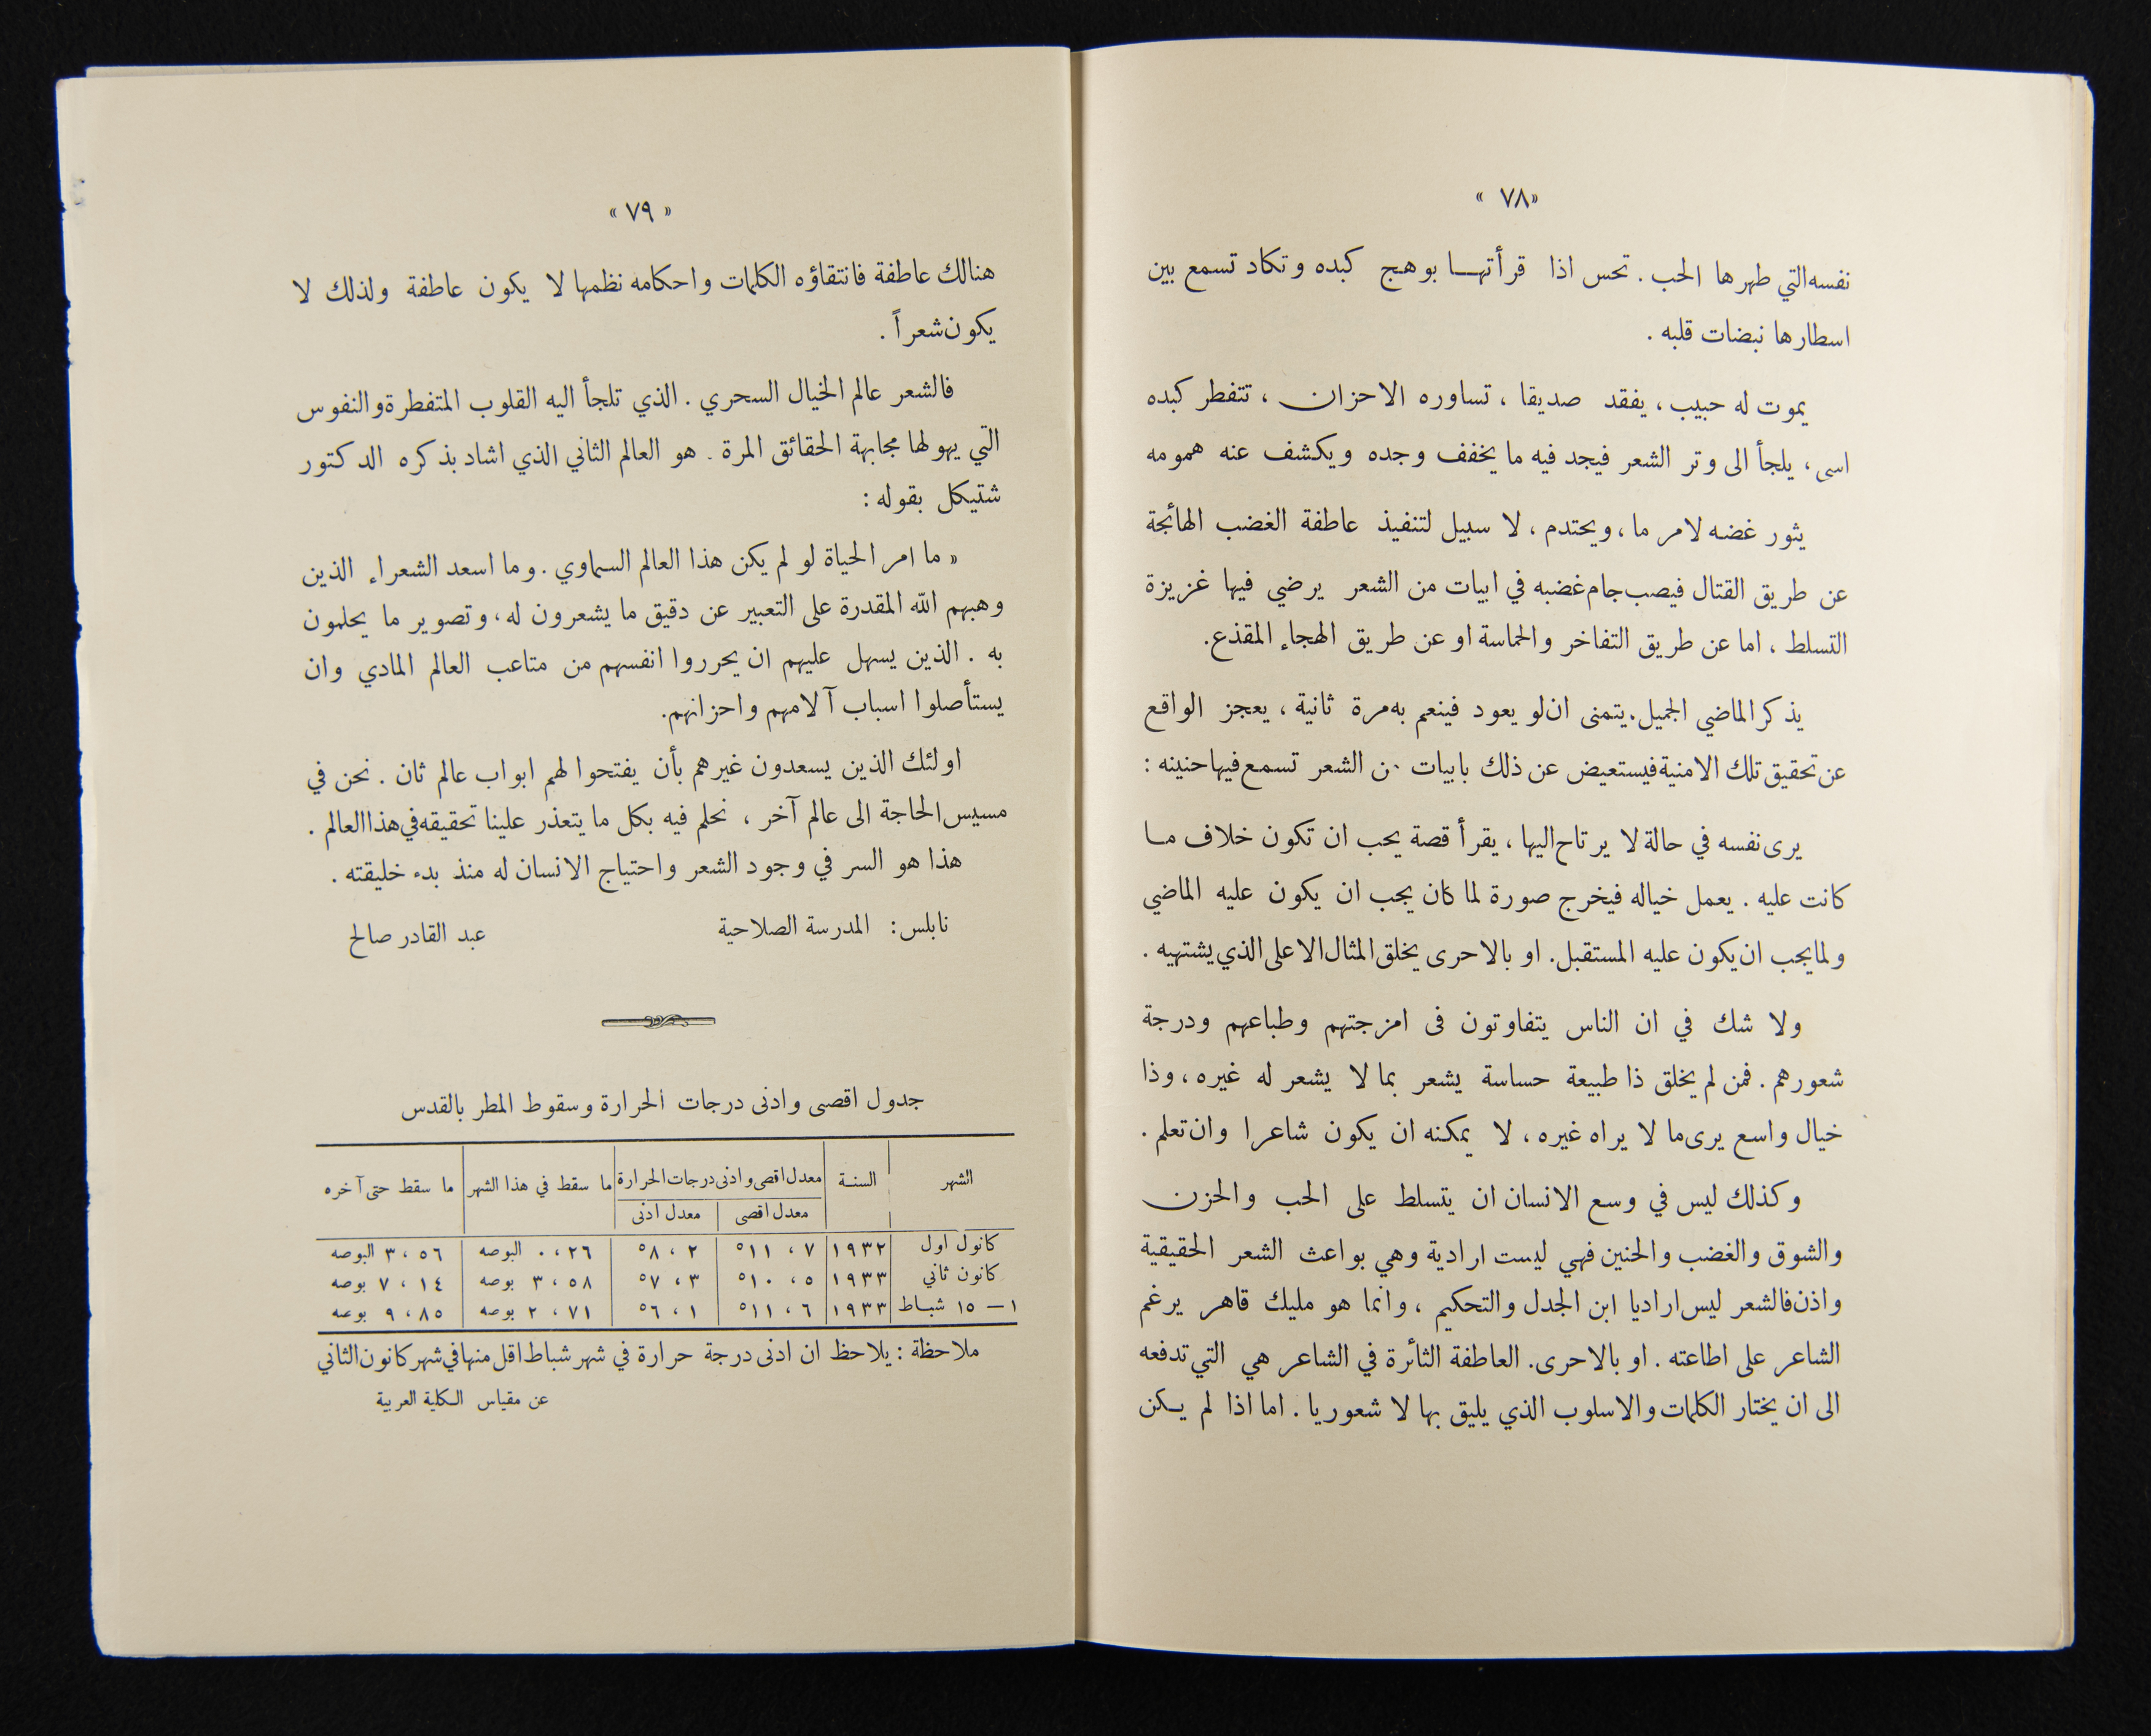 «٧٨»
نفسه التي طهرها الحب . تحس اذا قرأتهـا بوهج كبده وتكاد تسمع بين
اسطارها نبضات قلبه .
يموت له حبيب ، يفقد صديقا ، تساوره الاحزان ، تتفطر كبده
اسى ، يلجأ الى وتر الشعر فيجد فيه ما يخفف وجده ويكشف عنه همومه
يثور غضبه لامر ما ، ويحتدم ، لا سبيل لتنفيذ عاطفة الغضب الهائجة
عن طريق القتال فيصب جام غضبه في ابيات من الشعر يرضي فيها غزيزة
التسلط ، اما عن طريق التفاخر والحماسة او عن طريق الهجاء المقذع .
يذكر الماضي الجميل . يتمنى ان لو يعود فينعم به مرة ثانية ، يعجز الواقع
عن تحقيق تلك الامنية فيستعيض عن ذلك بابيات من الشعر تسمع فيها حنينه :
يرى نفسه في حالة لا يرتاح اليها ، يقرأ قصة يحب ان تكون خلاف مـا
كانت عليه . يعمل خياله فيخرج صورة لما كان يجب ان يكون عليه الماضي
ولما يجب ان يكون عليه المستقبل . او بالاحرى يخلق المثال الاعلى الذي يشتهيه .
ولا شك في ان الناس يتفاوتون فى امزجتهم وطباعهم ودرجة
شعورهم . فمن لم يخلق ذا طبيعة حساسة يشعر بما لا يشعر له غيره ، وذا
خيال واسع يرى ما لا يراه غيره ، لا يمكنه ان يكون شاعرا وان تعلم .
وكذلك ليس في وسع الانسان ان يتسلط على الحب والحزن
والشوق والغضب والحنين فهي ليست ارادية وهي بواعث الشعر الحقيقية
واذن فالشعر ليس اراديا ابن الجدل والتحكيم ، وانما هو مليك قاهر يرغم
الشاعر على اطاعته . او بالاحرى . العاطفة الثائرة في الشاعر هي التي تدفعه
الى ان يختار الكلمات والاسلوب الذي يليق بها لا شعوريا . اما اذا لم يـكن
« ٧٩ »
هنالك عاطفة فانتقاؤه الكلمات واحكامه نظمها لا يكون عاطفة ولذلك لا
يكون شعراً .
فالشعر عالم الخيال السحري . الذي تلجأ اليه القلوب المتفطرة والنفوس
التي يهولها مجابهة الحقائق المرة . هو العالم الثاني الذي اشاد بذكره الدكتور
شتيكل بقوله :
« ما امر الحياة لو لم يكن هذا العالم السماوي . وما اسعد الشعراء الذين
وهبهم الله المقدرة على التعبير عن دقيق ما يشعرون له ، وتصوير ما يحلمون
به . الذين يسهل عليهم ان يحرروا انفسهم من متاعب العالم المادي وان
يستأصلوا اسباب آلامهم واحزانهم .
اولئك الذين يسعدون غيرهم بأن يفتحوا لهم ابواب عالم ثان . نحن في
مسيس الحاجة الى عالم آخر ، نحلم فيه بكل ما يتعذر علينا تحقيقه في هذا العالم .
هذا هو السر في وجود الشعر واحتياج الانسان له منذ بدء خليقته .
نابلس : المدرسة الصلاحية عبد القادر صالح
جدول اقصى وادنى درجات الحرارة وسقوط المطر بالقدس
الشهر السنة معدل اقصى وادنى درجات الحرارة ما سقط في هذا الشهر ما سقط حتى آخره
معدل اقصى معدل ادنى
كانول اول ١٩٣٢ ٧ ، ١١° ٢ ، ٨° ٢٦ ، ٠ البوصه ٥٦ ، ٣ البوصه
كانون ثاني ١٩٣٣ ٥ ، ١٠° ٣ ، ٧° ٥٨ ، ٣ بوصه ١٤ ، ٧ بوصه
١ – ١٥ شباط ١٩٣٣ ٦ ، ١١° ١ ، ٦° ٧١ ، ٢ بوصه ٨٥ ، ٩ بوصه
ملاحظة : يلاحظ ان ادنى درجة حرارة في شهر شباط اقل منها في شهر كانون الثاني
عن مقياس الكلية العربية